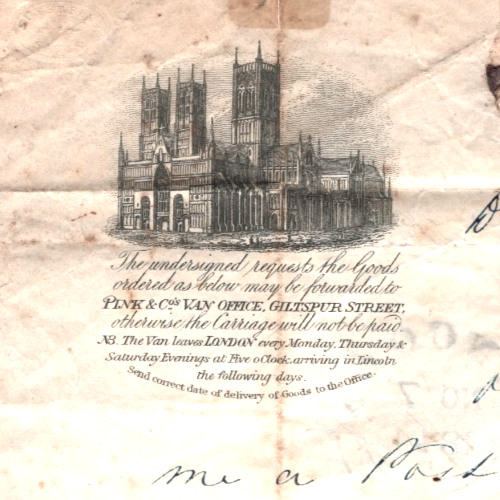 The undersigned requests the Goods
ordered as below may be forwarded to
PINK & Co's VAN OFFICE, GILTSPUR STREET,
otherwise the Carriage will not be paid.
NB. The Van leaves LONDON every Monday, Thursday &
Saturday Evenings at Five o Clock, arriving in Lincoln
the following days.
Send correct date of delivery of Goods to the Office.
me a Post